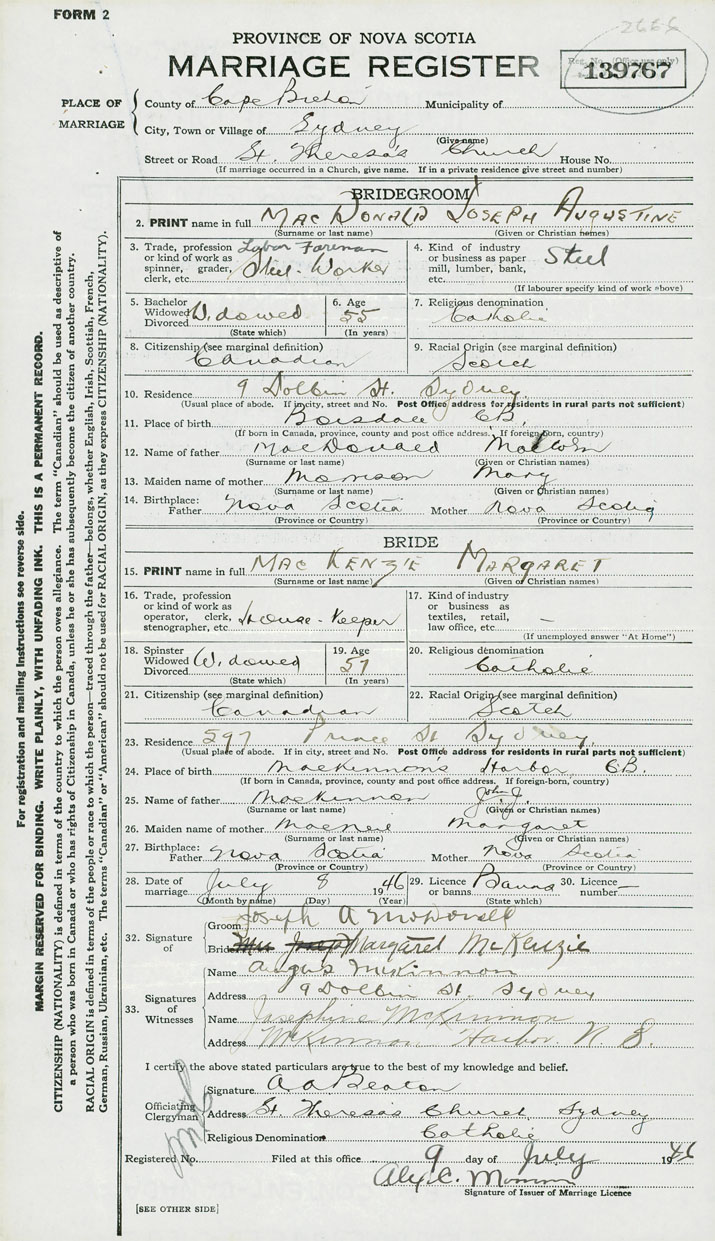 FORM 2
2666
PROVINCE OF NOVA SCOTIA
MARRIAGE REGISTER
Reg. No. (Office use only)
139767
PLACE OF MARRIAGE
County of Cape Breton Municipality of
City, Town or Village of Sydney
(Give name)
Street or Road St. Theresa's Church House No.
(If marriage occurred in a Church, give name. If in a private residence give street and number)
BRIDEGROOM
2. PRINT name in full MacDonald Joseph Augustine
(Surname or last name) (Given or Christian names)
3. Trade, profession or kind of work as spinner, grader, clerk, etc. Labor Foreman Steel-Worker
4. Kind of industry or business as paper mill, lumber, bank, etc. Steel
(If labourer specify kind of work above)
5. Bachelor Widowed Divorced Widowed
(State which)
6. Age 55
(In years)
7. Religious denomination
Catholic
8. Citizenship (see marginal definition)
Canadian
9. Racial Origin (see marginal definition)
Scotch
10. Residence 9 Dolbin St. Sydney
(Usual place of abode. If in city, street and No. Post Office address for residents in rural parts not sufficient)
11. Place of birth Boisdale C.B.
(If born in Canada, province, county and post office address. If foreign born, country)
12. Name of father MacDonald Malcolm
(Surname or last name) (Given or Christian names)
13. Maiden name of mother Morrison Mary
(Surname or last name) (Given or Christian names)
14. Birthplace: Father Nova Scotia Mother Nova Scotia
(Province or Country) (Province or Country)
BRIDE
15. PRINT name in full MacKenzie Margaret
(Surname or last name) (Given or Christian names)
16. Trade, profession or kind of work as operator, clerk, stenographer, etc. House-Keeper
17. Kind of industry or business as textiles, retail, law office, etc. –
(If unemployed answer "At Home")
18. Spinster Widowed Divorced Widowed
(State which)
19. Age 57
(In years)
20. Religious denomination
Catholic
21. Citizenship (see marginal definition)
Canadian
22. Racial Origin (see marginal definition)
Scotch
23. Residence 597 Prince St Sydney
(Usual place of abode. If in city, street and No. Post Office address for residents in rural parts not sufficient)
24. Place of birth MacKinnon's Harbor C.B.
(If born in Canada, province, county and post office address. If foreign born, country)
25. Name of father MacKinnon John J.
(Surname or last name) (Given or Christian names)
26. Maiden name of mother MacNeil Margaret
(Surname or last name) (Given or Christian names)
27. Birthplace: Father Nova Scotia Mother Nova Scotia
(Province or Country) (Province or Country)
28. Date of marriage July 8 1946
(Month by name) (Day) (Year)
29. Licence or banns Banns
(State which)
30. Licence number –
32. Signature of
Groom Joseph A McDonald
Bride Margaret McKenzie
33. Signatures of Witnesses
Name Angus McKinnon
Address 9 Dolbin St. Sydney
Name Josephine McKinnon
Address McKinnon Harbor N.S.
I certify the above stated particulars are true to the best of my knowledge and belief.
Officiating Clergyman
Signature A A Beaton
Address St. Theresa's Church, Sydney
Religious Denomination Catholic
Registered No. Filed at this office 9 day of July 1946
Signature of Issuer of Marriage Licence
[SEE OTHER SIDE]
For registration and mailing instructions see reverse side.
MARGIN RESERVED FOR BINDING. WRITE PLAINLY, WITH UNFADING INK. THIS IS A PERMANENT RECORD.
CITIZENSHIP (NATIONALITY) is defined in terms of the country to which the person owes allegiance. The term "Canadian" should be used as descriptive of
a person who was born in Canada or who has rights of Citizenship in Canada, unless he or she has subsequently become the citizen of another country.
RACIAL ORIGIN is defined in terms of the people or race to which the person—traced through the father—belongs, whether English, Irish, Scottish, French,
German, Russian, Ukrainian, etc. The terms "Canadian" or "American" should not be used for RACIAL ORIGIN, as they express CITIZENSHIP (NATIONALITY).